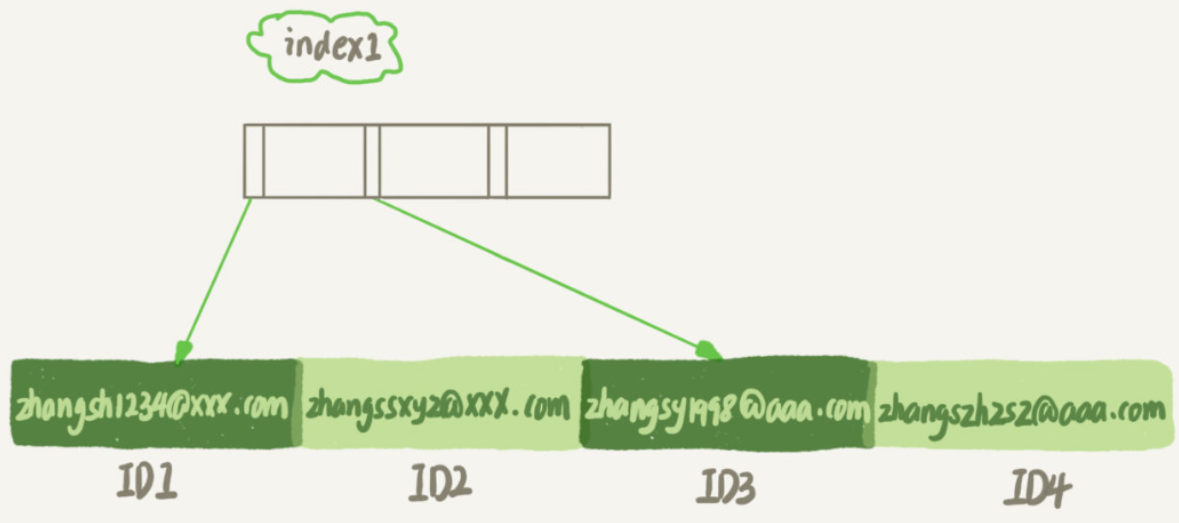 index1
zhangsh1234@xxx.com
zhangssxyz@XXX.com
zhangsy1998@aaa.com
zhangszhzsz@aaa.com
ID1
ID2
ID3
ID4